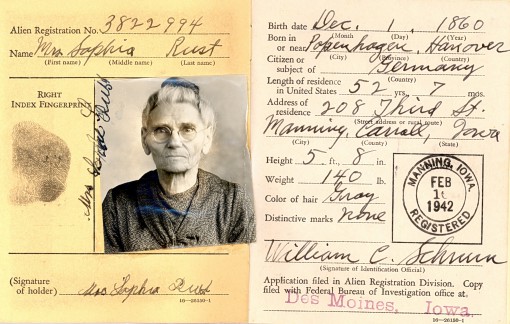 Alien Registration No. 3822994
Name Mrs Sophia Rust
(First name) (Middle name) (Last name)
RIGHT
INDEX FINGERPRINT
(Signature
of holder) Mrs Sophia Rust
16—26150-1
Birth date Dec. 1, 1860
(Month) (Day) (Year)
Born in
or near Popenhagen, Hanover
(City) (Province) (Country)
Citizen or
subject of Germany
(Country)
Length of residence
in United States 52 yrs., 7 mos.
Address of
residence 208 Third St.
(Street address or rural route)
Manning, Carroll, Iowa
(City) (County) (State)
Height 5 ft., 8 in.
Weight 140 lb.
Color of hair Gray
Distinctive marks None
MANNING, IOWA
FEB
1942
REGISTERED
William C. Schrum
(Signature of Identification Official)
Application filed in Alien Registration Division. Copy
filed with Federal Bureau of Investigation office at
Des Moines, Iowa.
16—26150-1